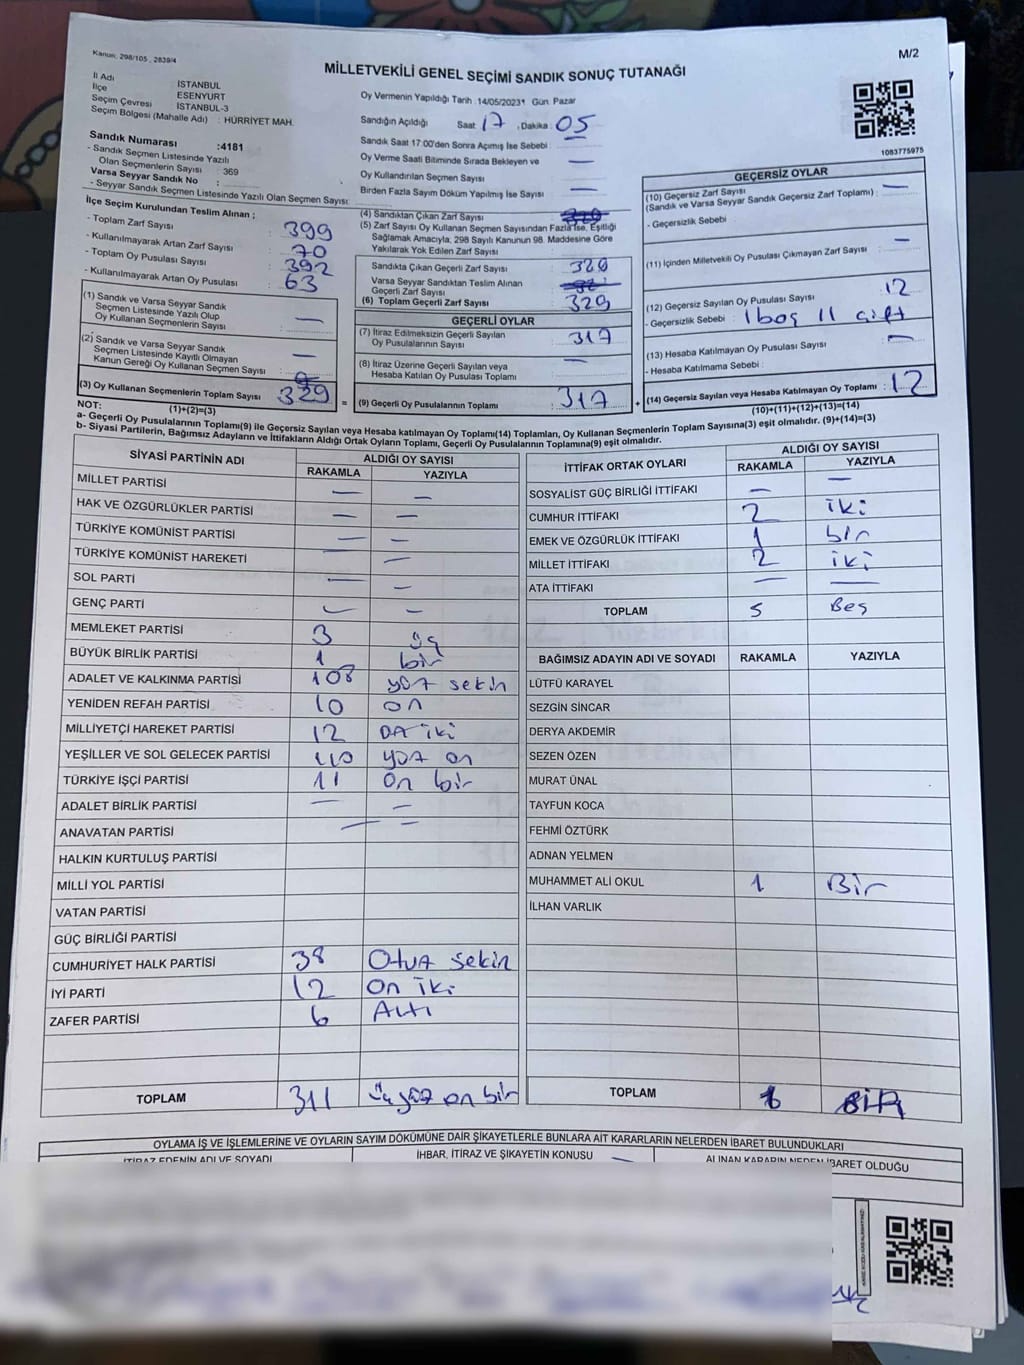 Kanun: 298/105 , 2839/4
M/2
MİLLETVEKİLİ GENEL SEÇİMİ SANDIK SONUÇ TUTANAĞI
İl Adı İSTANBUL
İlçe ESENYURT
Seçim Çevresi İSTANBUL-3
Seçim Bölgesi (Mahalle Adı) : HÜRRİYET MAH.
Sandık Numarası :4181
- Sandık Seçmen Listesinde Yazılı
Olan Seçmenlerin Sayısı : 369
Varsa Seyyar Sandık No :
- Seyyar Sandık Seçmen Listesinde Yazılı Olan Seçmen Sayısı:
Oy Vermenin Yapıldığı Tarih :14/05/2023 Gün: Pazar
Sandığın Açıldığı Saat 17 , Dakika 05
Sandık Saat 17:00'den Sonra Açımış İse Sebebi : —
Oy Verme Saati Bitiminde Sırada Bekleyen ve
Oy Kullandırılan Seçmen Sayısı —
Birden Fazla Sayım Döküm Yapılmış İse Sayısı —
1083775975
İlçe Seçim Kurulundan Teslim Alınan ;
- Toplam Zarf Sayısı : 399
- Kullanılmayarak Artan Zarf Sayısı : 70
- Toplam Oy Pusulası Sayısı : 392
- Kullanılmayarak Artan Oy Pusulası : 63
(1) Sandık ve Varsa Seyyar Sandık
Seçmen Listesinde Yazılı Olup
Oy Kullanan Seçmenlerin Sayısı : —
(2) Sandık ve Varsa Seyyar Sandık
Seçmen Listesinde Kayıtlı Olmayan
Kanun Gereği Oy Kullanan Seçmen Sayısı : —
(3) Oy Kullanan Seçmenlerin Toplam Sayısı 329
(1)+(2)=(3)
(4) Sandıktan Çıkan Zarf Sayısı
(5) Zarf Sayısı Oy Kullanan Seçmen Sayısından Fazla İse, Eşitliği
Sağlamak Amacıyla, 298 Sayılı Kanunun 98. Maddesine Göre
Yakılarak Yok Edilen Zarf Sayısı
Sandıkta Çıkan Geçerli Zarf Sayısı 329
Varsa Seyyar Sandıktan Teslim Alınan
Geçerli Zarf Sayısı
(6) Toplam Geçerli Zarf Sayısı 329
GEÇERLİ OYLAR
(7) İtiraz Edilmeksizin Geçerli Sayılan
Oy Pusulalarının Sayısı : 317
(8) İtiraz Üzerine Geçerli Sayılan veya
Hesaba Katılan Oy Pusulası Toplamı : —
= (9) Geçerli Oy Pusulalarının Toplamı : 317 +
GEÇERSİZ OYLAR
(10) Geçersiz Zarf Sayısı
(Sandık ve Varsa Seyyar Sandık Geçersiz Zarf Toplamı) : —
- Geçersizlik Sebebi :
(11) İçinden Milletvekili Oy Pusulası Çıkmayan Zarf Sayısı : —
(12) Geçersiz Sayılan Oy Pusulası Sayısı : 12
- Geçersizlik Sebebi : 1 boş 11 çift
(13) Hesaba Katılmayan Oy Pusulası Sayısı : —
- Hesaba Katılmama Sebebi :
(14) Geçersiz Sayılan veya Hesaba Katılmayan Oy Toplamı : 12
(10)+(11)+(12)+(13)=(14)
NOT:
a- Geçerli Oy Pusulasının Toplamı(9) ile Geçersiz Sayılan veya Hesaba katılmayan Oy Toplamı(14) Toplamları, Oy Kullanan Seçmenlerin Toplam Sayısına(3) eşit olmalıdır. (9)+(14)=(3)
b- Siyasi Partilerin, Bağımsız Adayların ve İttifakların Aldığı Ortak Oyların Toplamı, Geçerli Oy Pusulalarının Toplamına(9) eşit olmalıdır.
SİYASİ PARTİNİN ADI ALDIĞI OY SAYISI
RAKAMLA YAZIYLA
MİLLET PARTİSİ — —
HAK VE ÖZGÜRLÜKLER PARTİSİ — —
TÜRKİYE KOMÜNİST PARTİSİ — —
TÜRKİYE KOMÜNİST HAREKETİ —
SOL PARTİ — —
GENÇ PARTİ — —
MEMLEKET PARTİSİ 3 üç
BÜYÜK BİRLİK PARTİSİ 1 bir
ADALET VE KALKINMA PARTİSİ 108 yüz sekiz
YENİDEN REFAH PARTİSİ 10 on
MİLLİYETÇİ HAREKET PARTİSİ 12 on iki
YEŞİLLER VE SOL GELECEK PARTİSİ 110 yüz on
TÜRKİYE İŞÇİ PARTİSİ 11 on bir
ADALET BİRLİK PARTİSİ — —
ANAVATAN PARTİSİ — —
HALKIN KURTULUŞ PARTİSİ
MİLLİ YOL PARTİSİ
VATAN PARTİSİ
GÜÇ BİRLİĞİ PARTİSİ
CUMHURİYET HALK PARTİSİ 38 Otuz sekiz
İYİ PARTİ 12 on iki
ZAFER PARTİSİ 6 Altı
TOPLAM 311 üç yüz on bir
İTTİFAK ORTAK OYLARI ALDIĞI OY SAYISI
RAKAMLA YAZIYLA
SOSYALİST GÜÇ BİRLİĞİ İTTİFAKI — —
CUMHUR İTTİFAKI 2 iki
EMEK VE ÖZGÜRLÜK İTTİFAKI 1 bir
MİLLET İTTİFAKI 2 iki
ATA İTTİFAKI — —
TOPLAM 5 Beş
BAĞIMSIZ ADAYIN ADI VE SOYADI RAKAMLA YAZIYLA
LÜTFÜ KARAYEL
SEZGİN SİNCAR
DERYA AKDEMİR
SEZEN ÖZEN
MURAT ÜNAL
TAYFUN KOCA
FEHMİ ÖZTÜRK
ADNAN YELMEN
MUHAMMET ALİ OKUL 1 Bir
İLHAN VARLIK
TOPLAM 1 BİR
OYLAMA İŞ VE İŞLEMLERİNE VE OYLARIN SAYIM DÖKÜMÜNE DAİR ŞİKAYETLERLE BUNLARA AİT KARARLARIN NELERDEN İBARET BULUNDUKLARI
İTİRAZ EDENİN ADI VE SOYADI İHBAR, İTİRAZ VE ŞİKAYETİN KONUSU ALINAN KARARIN NEDEN İBARET OLDUĞU